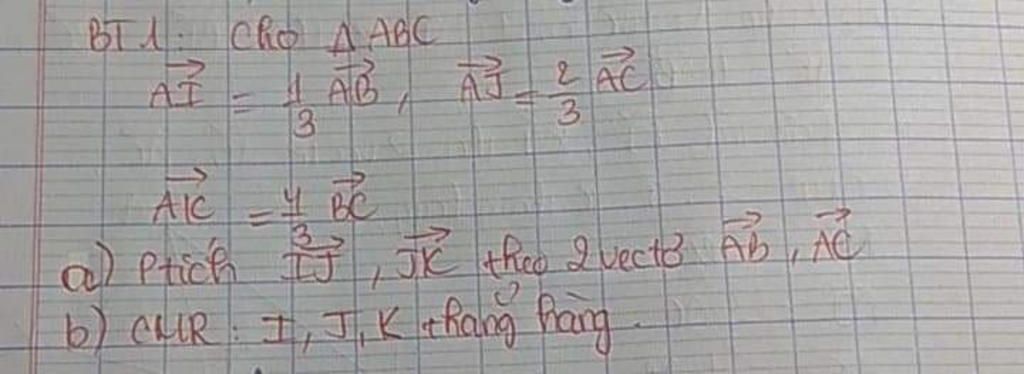 BT1: Cho Δ ABC
\vec{AI} = \frac{1}{3} \vec{AB}, \vec{AJ} = \frac{2}{3} \vec{AC}
\vec{AK} = \frac{4}{3} \vec{BC}
a) Ptích \vec{IJ}, \vec{JK} theo 2 vectơ \vec{AB}, \vec{AC}
b) CMR: I, J, K thẳng hàng.